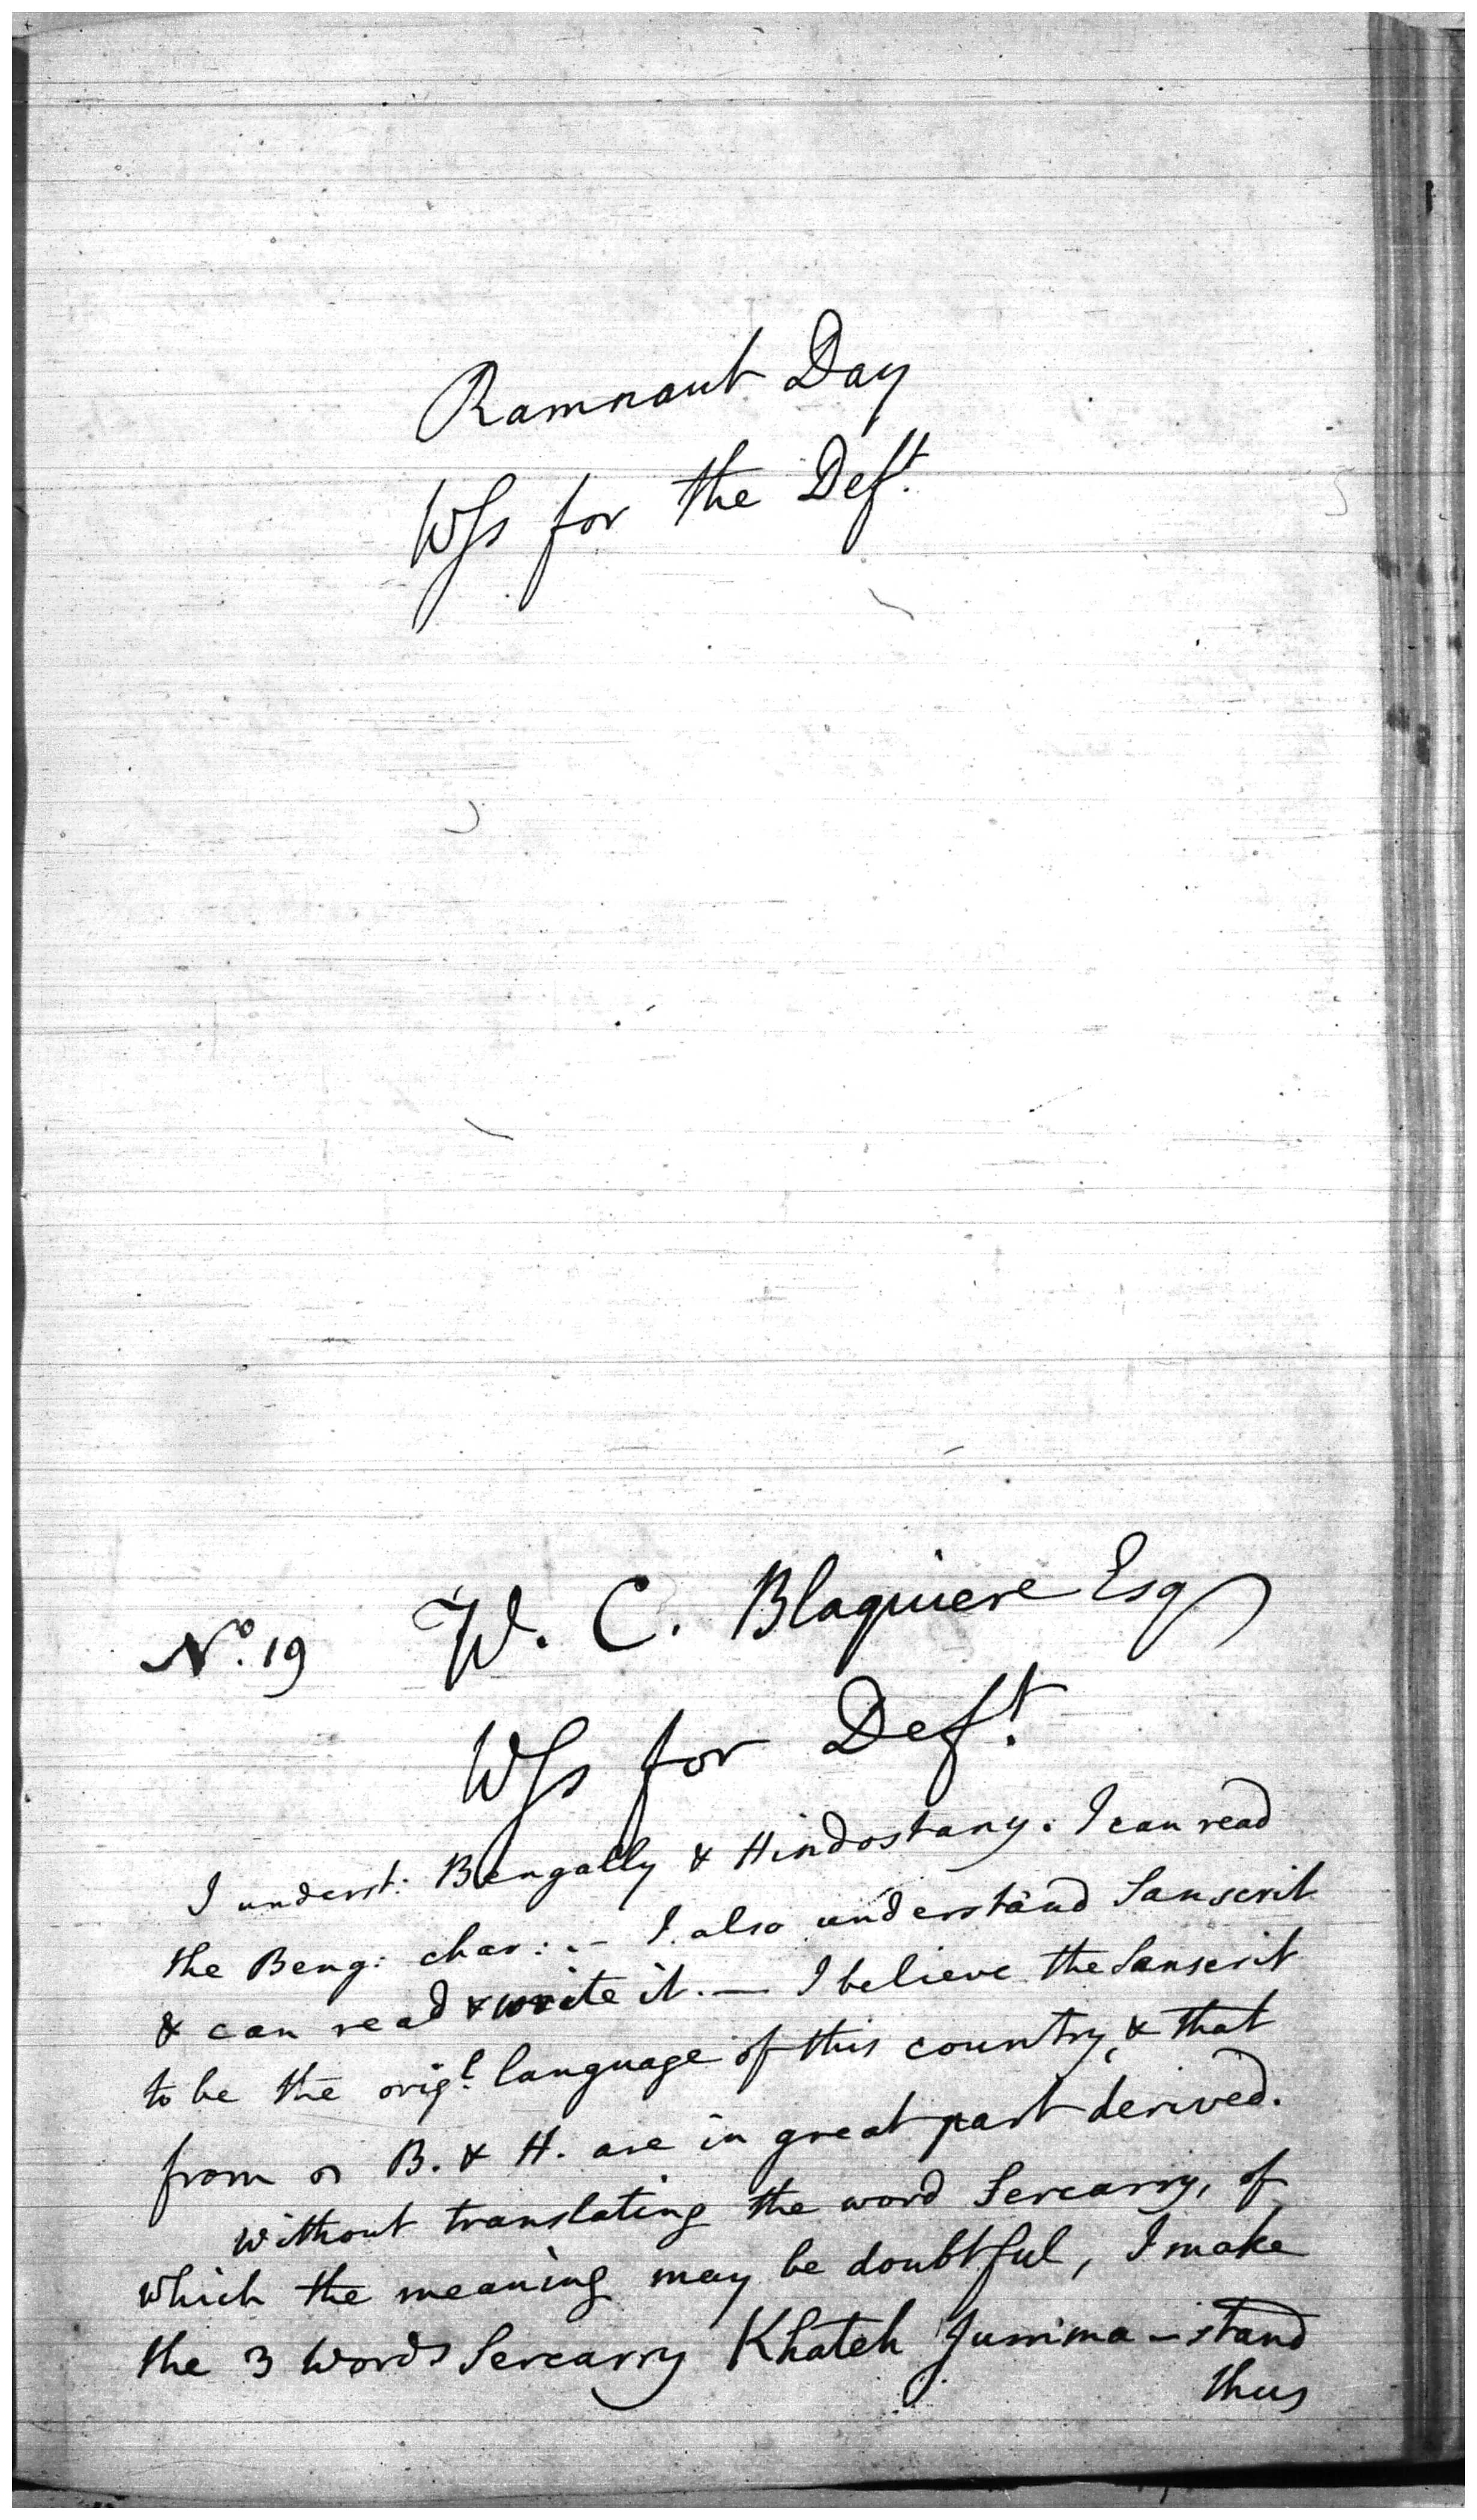 Ramnaut Day
Wss for the Deft.
No. 19 W. C. Blaquiere Esq
Wss for Deft.
I underst: Bengally & Hindostany. I can read
the Beng: char: .- I also understand Sanscrit
& can read & write it. — I believe the Sanscrit
to be the origl. language of this country, & that
from B. & H. are in great part derived.
without translating the word Sercarry, of
which the meaning may be doubtful, I make
the 3 words Sercarry Khateh Jumma — stand
thus